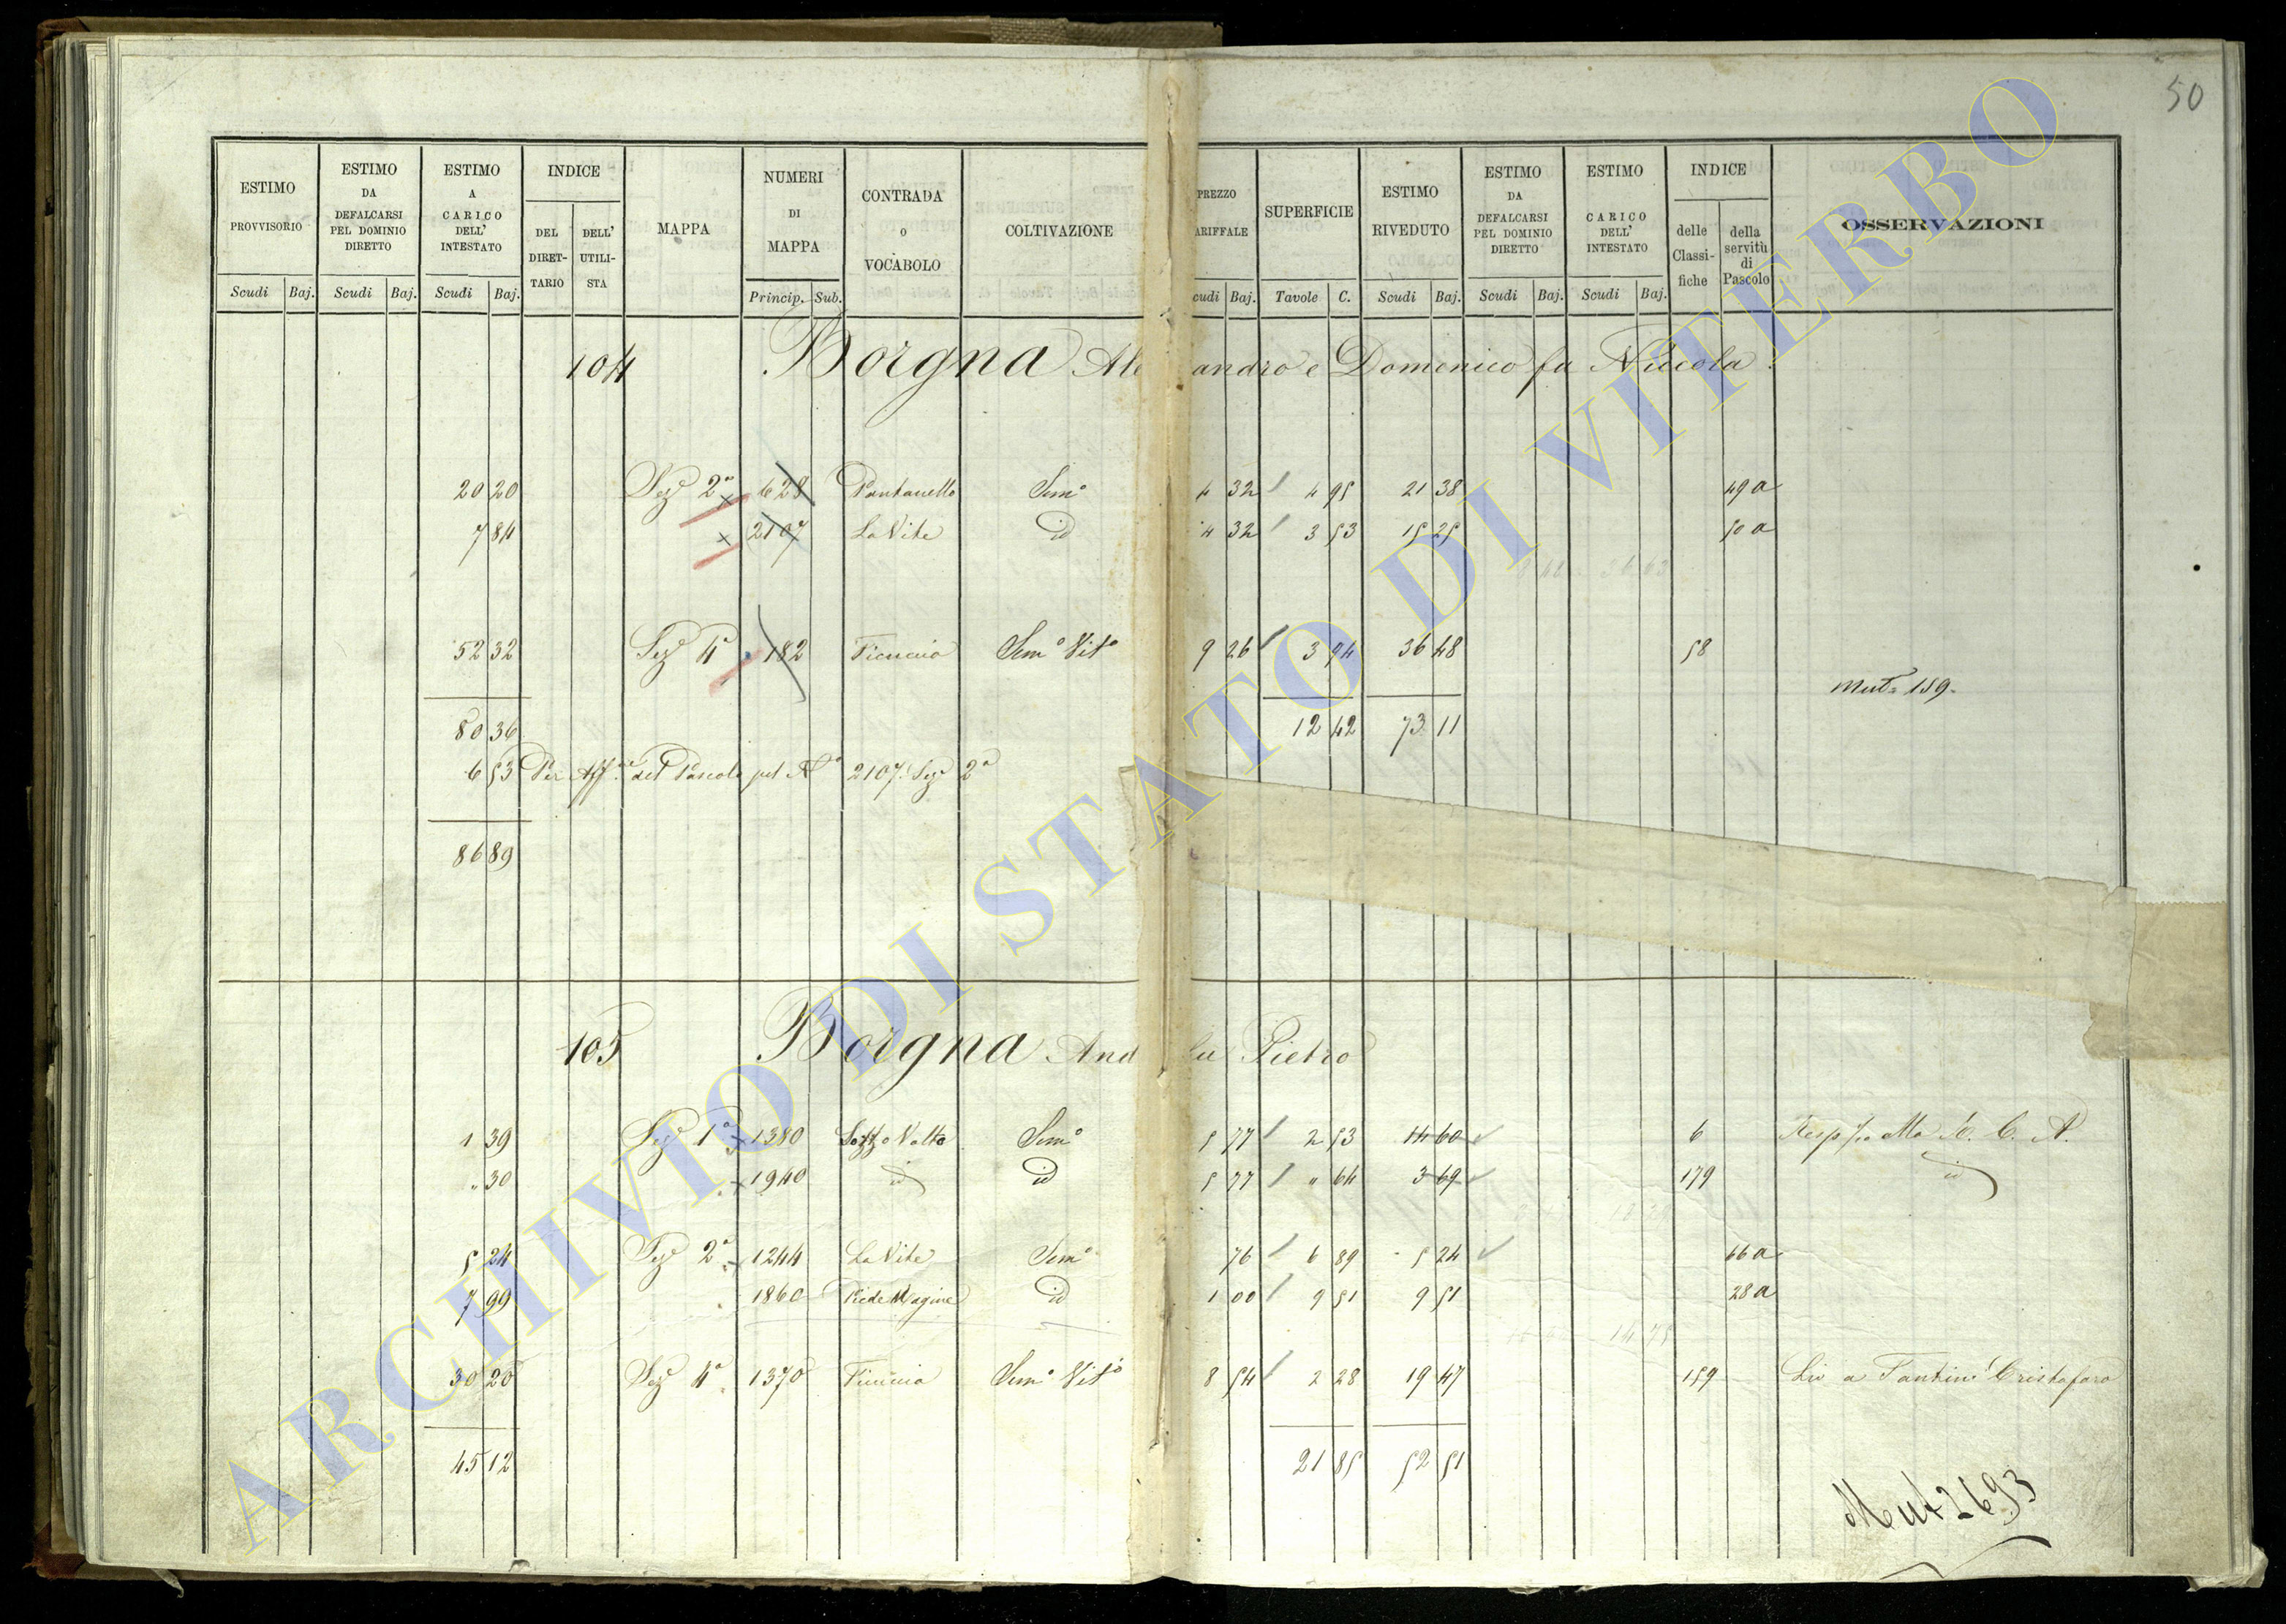 50
ESTIMO PROVVISORIO
ESTIMO DA DEFALCARSI PEL DOMINIO DIRETTO
ESTIMO A CARICO DELL' INTESTATO
INDICE
DEL DIRETTARIO
DELL' UTILISTA
MAPPA
NUMERI DI MAPPA
CONTRADA O VOCABOLO
COLTIVAZIONE
PREZZO
ARIFFALE
SUPERFICIE
ESTIMO RIVEDUTO
ESTIMO DA DEFALCARSI PEL DOMINIO DIRETTO
ESTIMO CARICO DELL' INTESTATO
INDICE
delle Classifiche
della servitù di Pascolo
OSSERVAZIONI
Scudi Baj. Scudi Baj. Scudi Baj. Princip. Sub. cudi Baj. Tavole C. Scudi Baj. Scudi Baj. Scudi Baj.
104 Borgna Ale andro e Domenico fu Niccola
20 20 Sezᵉ 2ª 628 Pantanello Semº 4 32 4 95 21 38 49 a
7 84 2107 La Vite id 4 32 3 53 15 25 50 a
52 32 Sezᵉ 4ª 182 Ficuccia Semº Vitº 9 26 3 94 36 48 58
Mutª 159
80 36 12 42 73 11
6 53 Per Aff.ᵉ del Pascolo pel Nº 2107 Sezᵉ 2ª
86 89
105 Borgna And fu Pietro
1 39 Sezᵉ 1ª 1380 Pozzo Volta Semº 5 77 2 53 14 60 6 Resp. alla R. C. A.
" 30 1940 id id 5 77 " 64 3 69 179 id
5 24 Sezᵉ 2ª 1244 La Vite Semº 76 6 89 5 24 66 a
7 99 1860 Piede Magine id 1 00 9 51 9 51 28 a
30 20 Sezᵉ 4ª 1370 Ficuccia Semº Vitº 8 54 2 28 19 47 159 Liv a Fantini Cristofaro
45 12 21 85 52 51
Mut 2693
ARCHIVIO DI STATO DI VITERBO